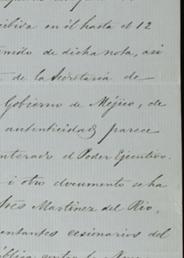 cibiva en il hasta el 12
enido de dicha nota, así
de la Secretaría de
Gobierno de Méjico, de
autenticidad parece
nterado el Poder Ejecutivo.
i otro documento se ha
drés Martinez del Rio,
entantes cesionarios del